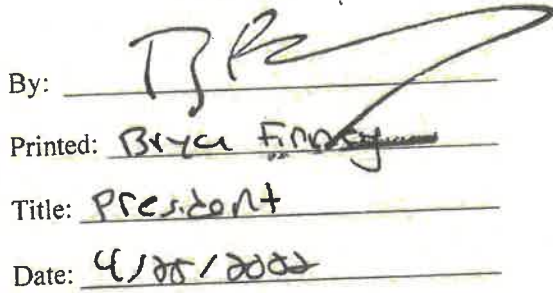 By:
Printed: Bryce Finney
Title: President
Date: 4/25/2022